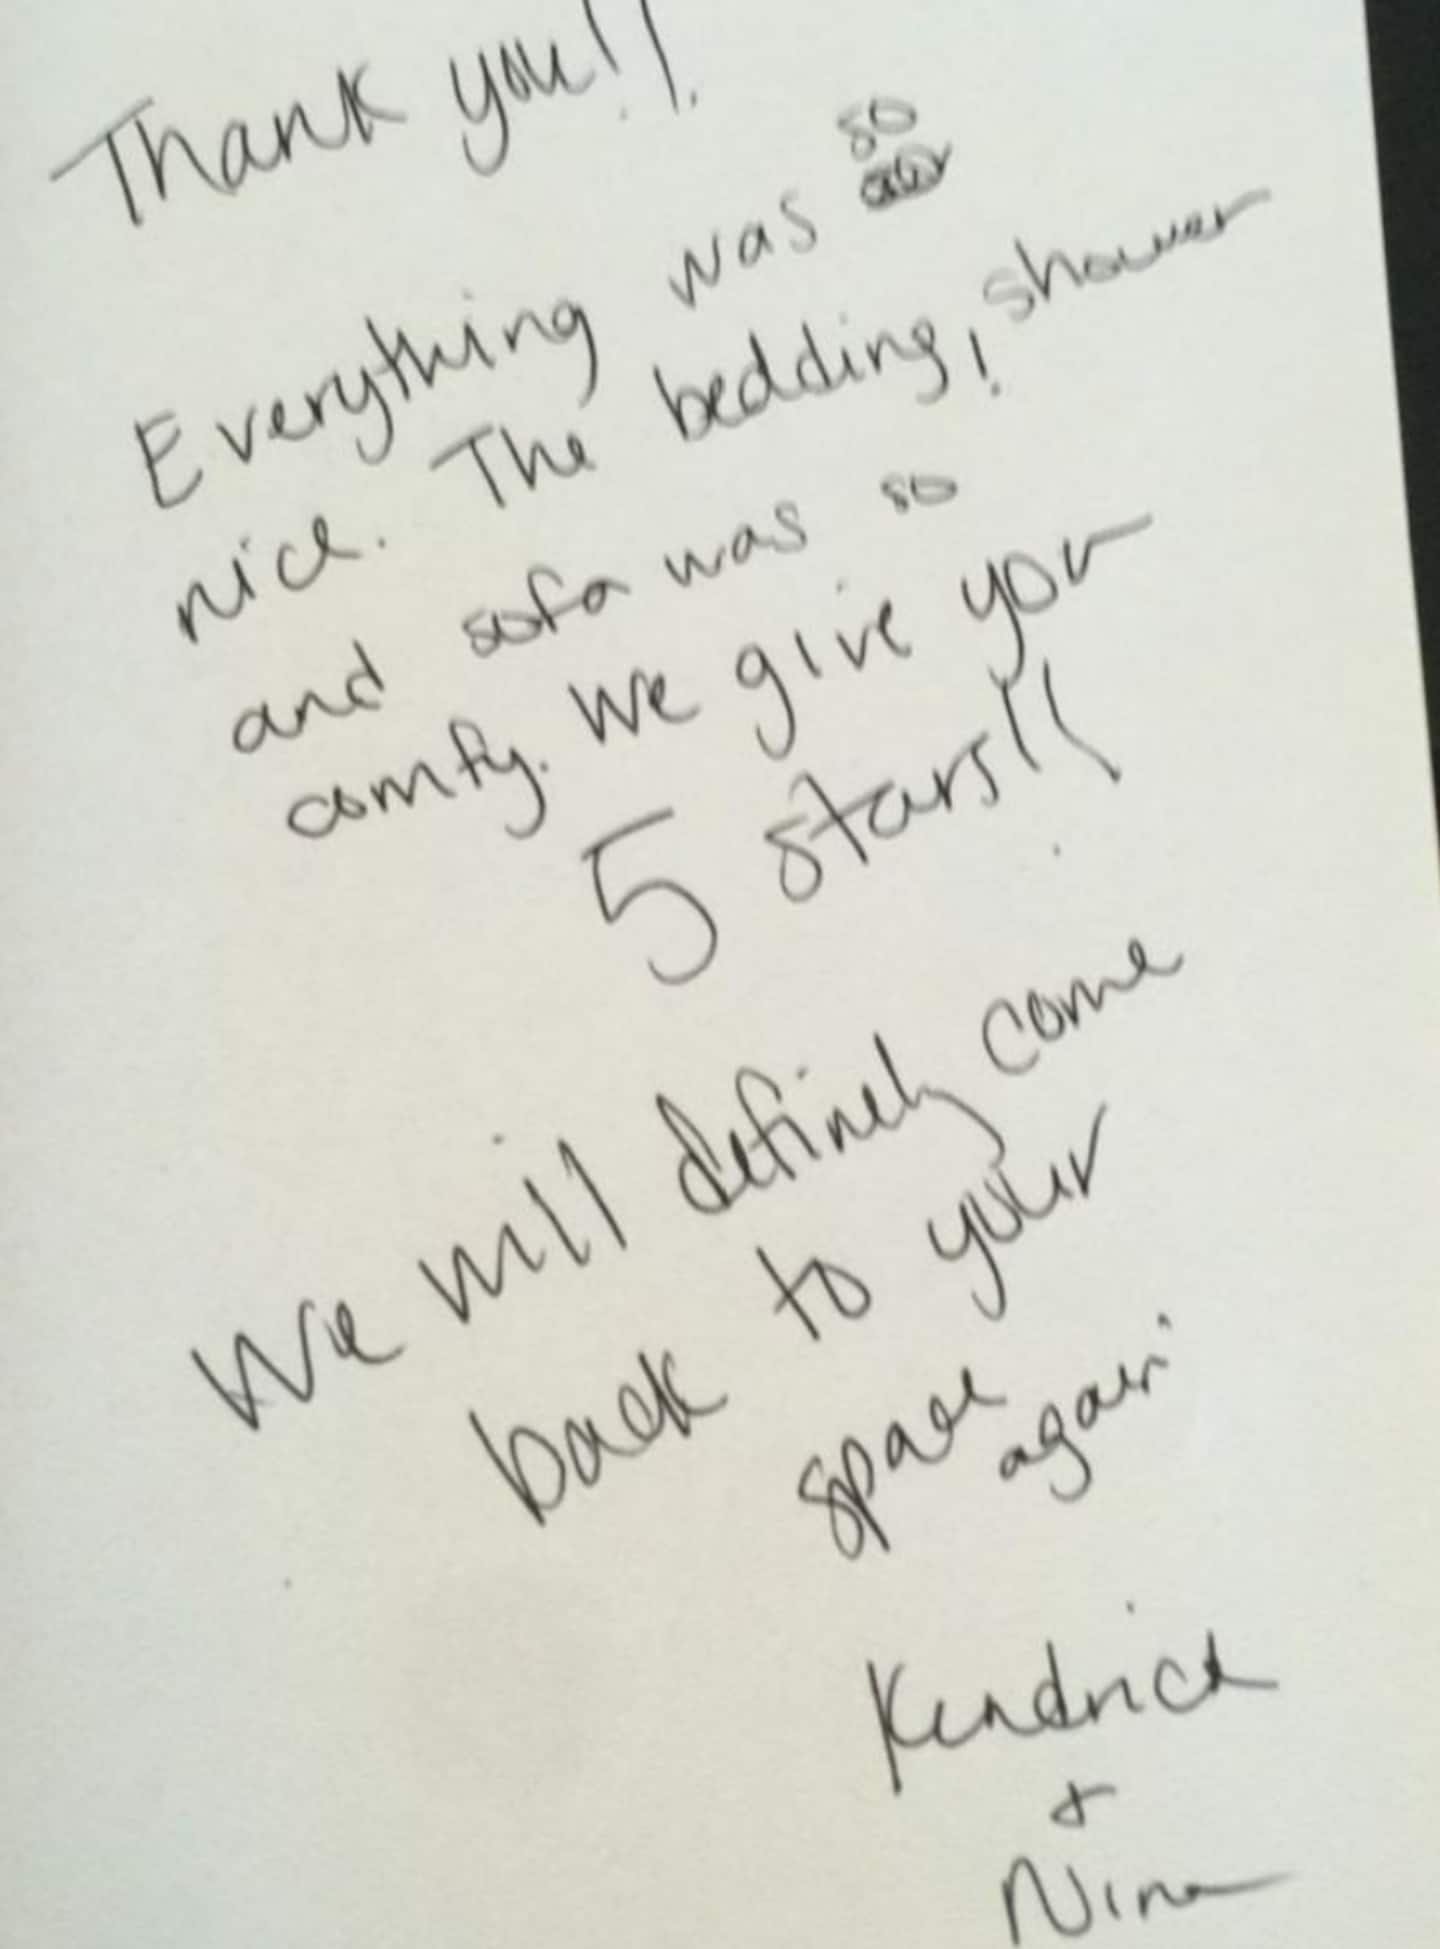 Thank you!!
Everything was so
nice. The bedding, shower
and sofa was so
comfy. We give you
5 stars!!
We will definely come
back to your
space again
Kendrick
+
Nina